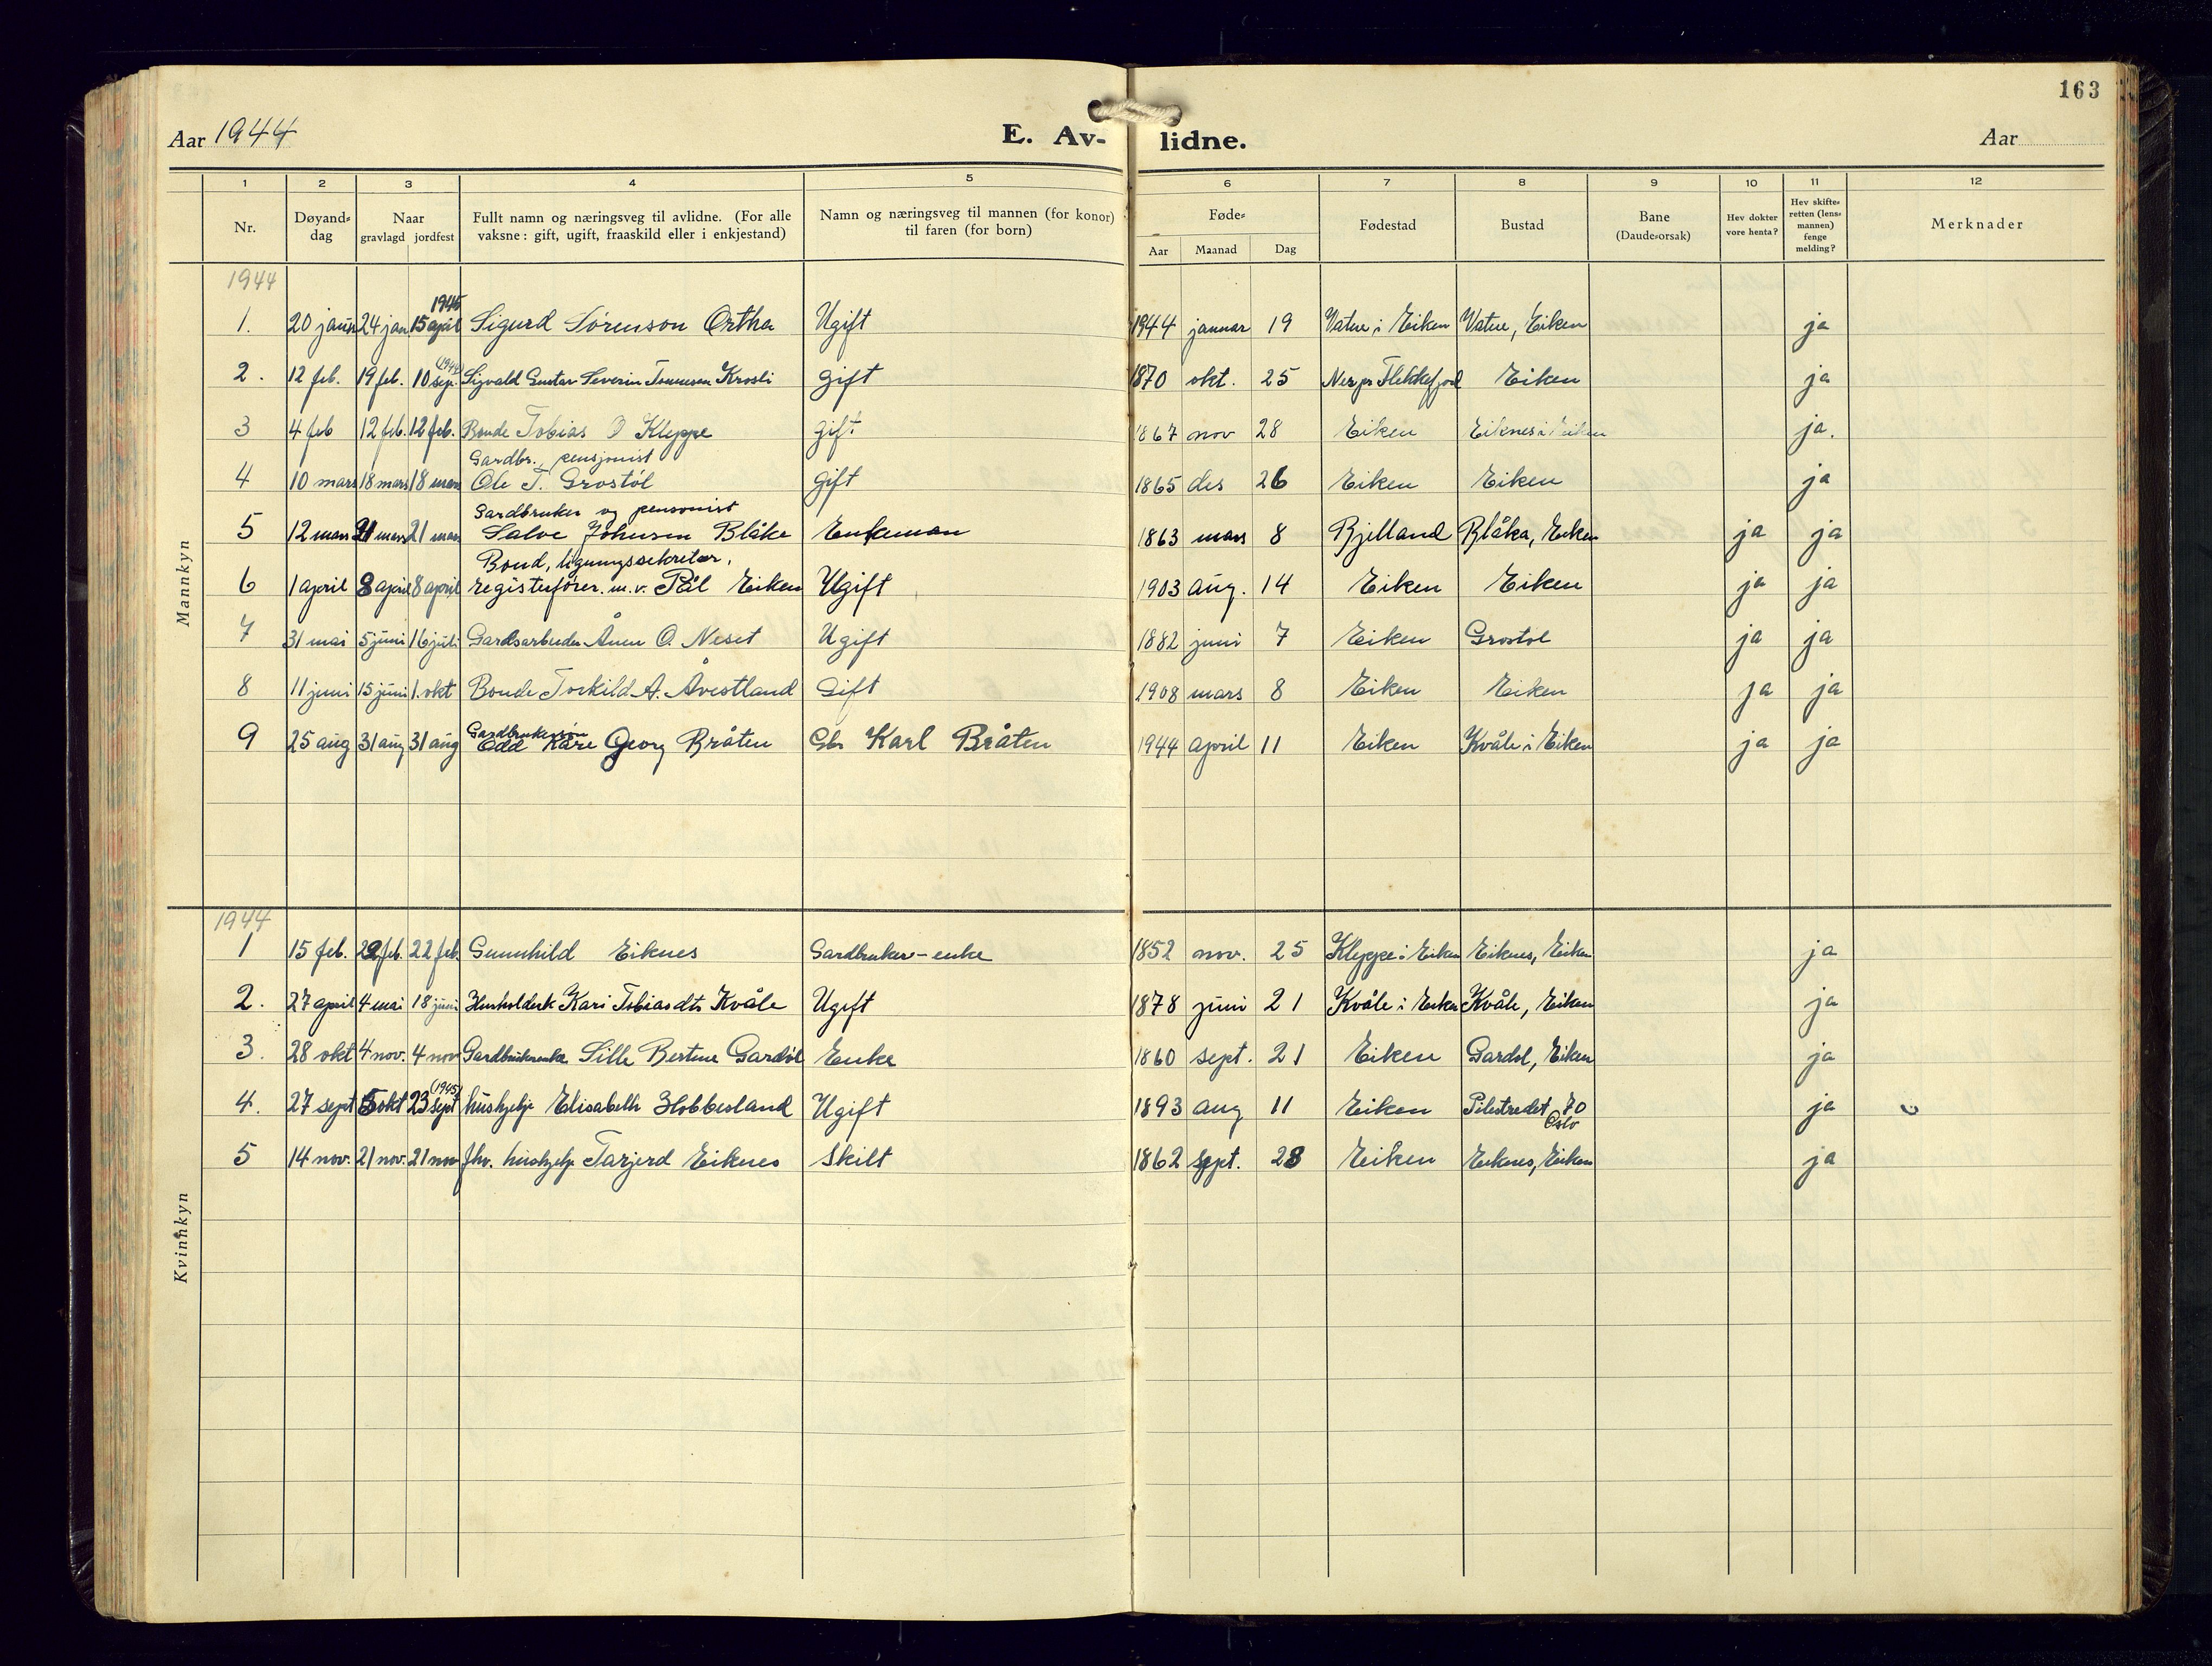 163
Aar 1944 E. Av- lidne. Aar
1 2 3 4 5 6 7 8 9 10 11 12
Nr. Døyand-dag Naar gravlagd jordfest Fullt namn og næringsveg til avlidne. (For alle vaksne: gift, ugift, fraaskild eller i enkjestand) Namn og næringsveg til mannen (for konor) til faren (for born) Føde- Aar Maanad Dag Fødestad Bustad Bane (Daude-orsak) Hev dokter vore henta? Hev skifte-retten (lens-mannen) fenge melding? Merknader
Mannkyn
1944
1945
1. 20 januar 24 jan 15 april Sigurd Sørenson Ortha Ugift 1944 januar 19 Vatne i Eiken Vatne, Eiken ja
(1944)
2. 12 feb. 19 feb. 10 sep. Sigvald Gustav Severin Tønnesen Krosli gift 1870 okt. 25 Nes pr Flekkefjord Eiken ja
3 4 feb 12 feb. 12 feb. Bonde Tobias O Kleppe gift 1867 nov 28 Eiken Eiknes i Eiken ja.
Gardbr., pensjonist
4 10 mars 18 mars 18 mars Ole T. Grostøl gift 1865 des 26 Eiken Eiken ja
Gardbruker og pensonist
5 12 mars 21 mars 21 mars Salve Johnsen Blåka Enkeman 1863 mars 8 Bjelland Blåka, Eiken ja ja
Bond, ligningssekretær,
6 1 april 8 april 8 april registerfører. m.v. Pål Eiken Ugift 1903 aug. 14 Eiken Eiken ja ja
7 31 mai 5 juni 16 juli Gardsarbeider Ånen O. Neset Ugift 1882 juni 7 Eiken Grostøl ja ja
8 11 juni 15 juni 1. okt Bonde Torkild A. Åvestland Gift 1908 mars 8 Eiken Eiken ja ja
Gardbrukersøn
9 25 aug 31 aug 31 aug Odd Kåre Georg Bråten Gbr Karl Bråten 1944 april 11 Eiken Kvåle i Eiken ja ja
Kvinnkyn
1944
1 15 feb. 22 feb. 22 feb. Gunnhild Eiknes Gardbruker-enke 1852 nov. 25 Kleppe i Eiken Eiknes, Eiken ja
2. 27 april 4 mai 18 juni Husholdersk Kari Tobiasdts Kvåle Ugift 1878 juni 21 Kvåle i Eiken Kvåle, Eiken ja
3. 28 okt 4 nov. 4 nov Gardbrukerenke Sille Bertine Gardøl Enke 1860 sept. 21 Eiken Gardøl, Eiken ja
(1945)
4. 27 sept 5 okt 23 sept hushjelp Elisabeth Hobbesland Ugift 1893 aug 11 Eiken Pilestredet 70 Oslo ja
5 14 nov. 21 nov. 21 nov fhv. hushjelp Tarjerd Eiknes Skilt 1862 sept. 28 Eiken Eiknes, Eiken ja